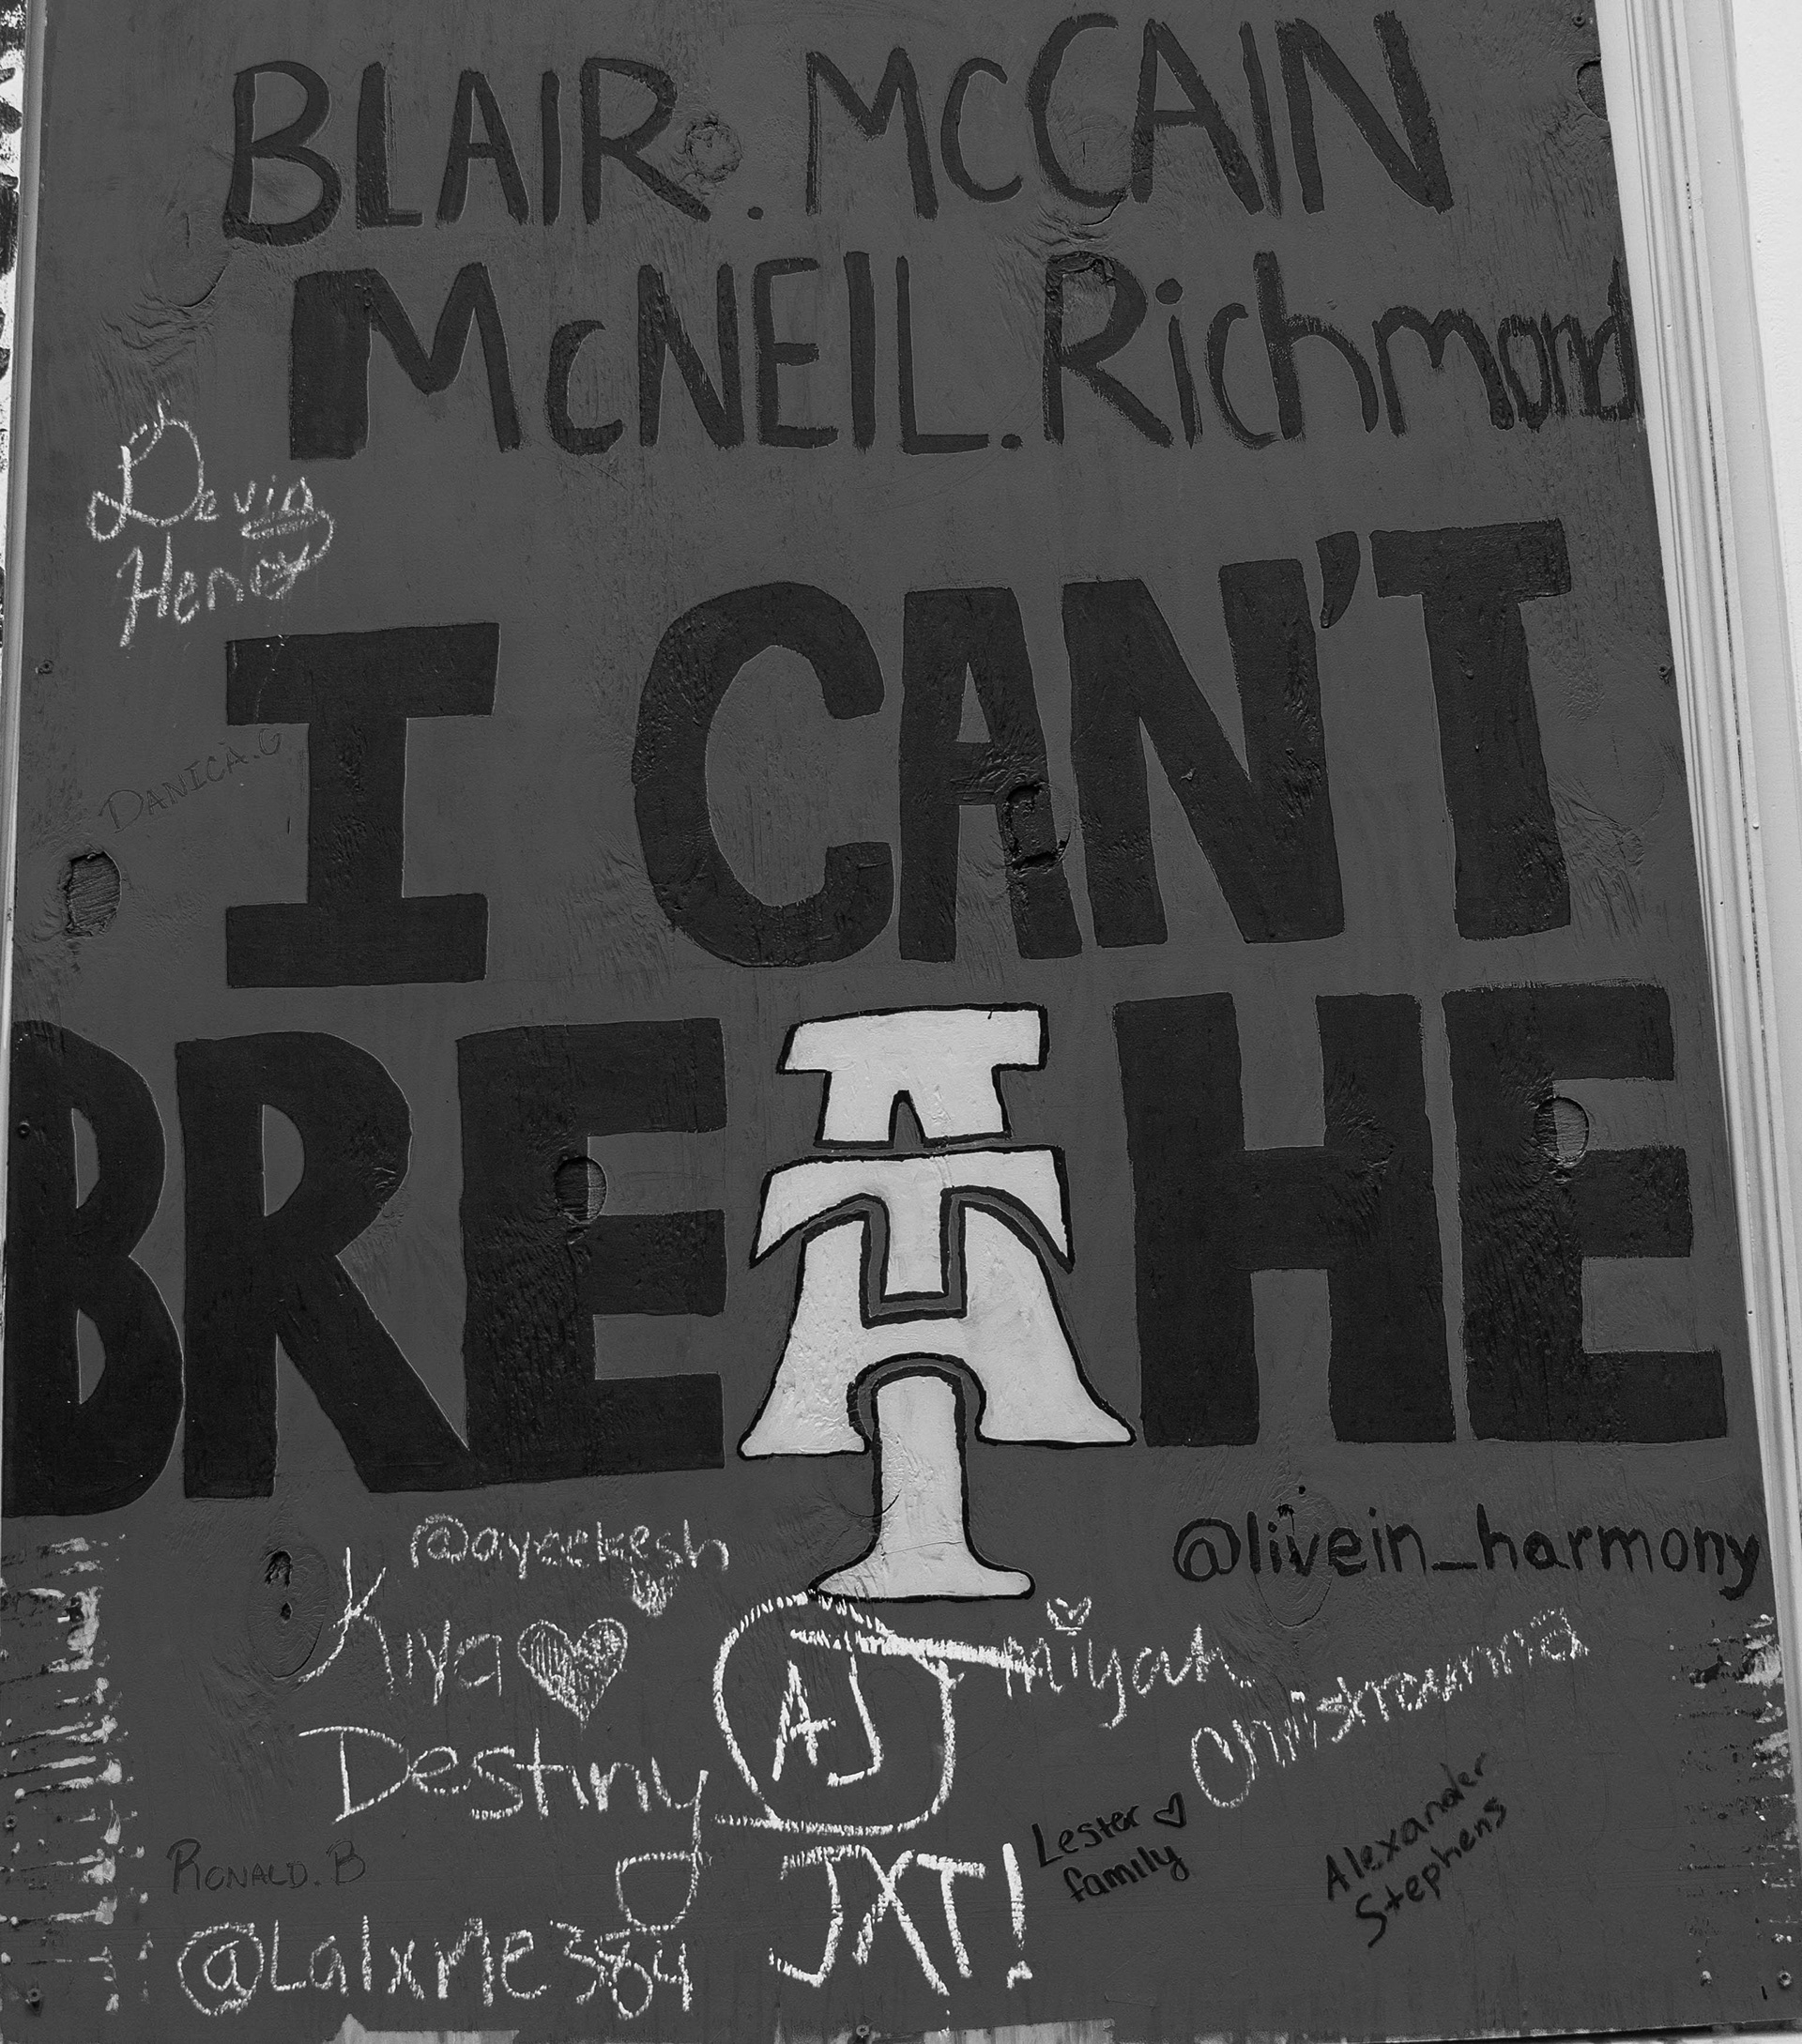 BLAIR. McCAIN
McNEIL. Richmond
Devin
Henry
I CAN'T
DANICA.G
BREATHE
@ayeekesh
@livein_harmony
Kiya
miyah
AJ
Destiny
Lester
family
Alexander
Stephens
RONALD. B
JXT!